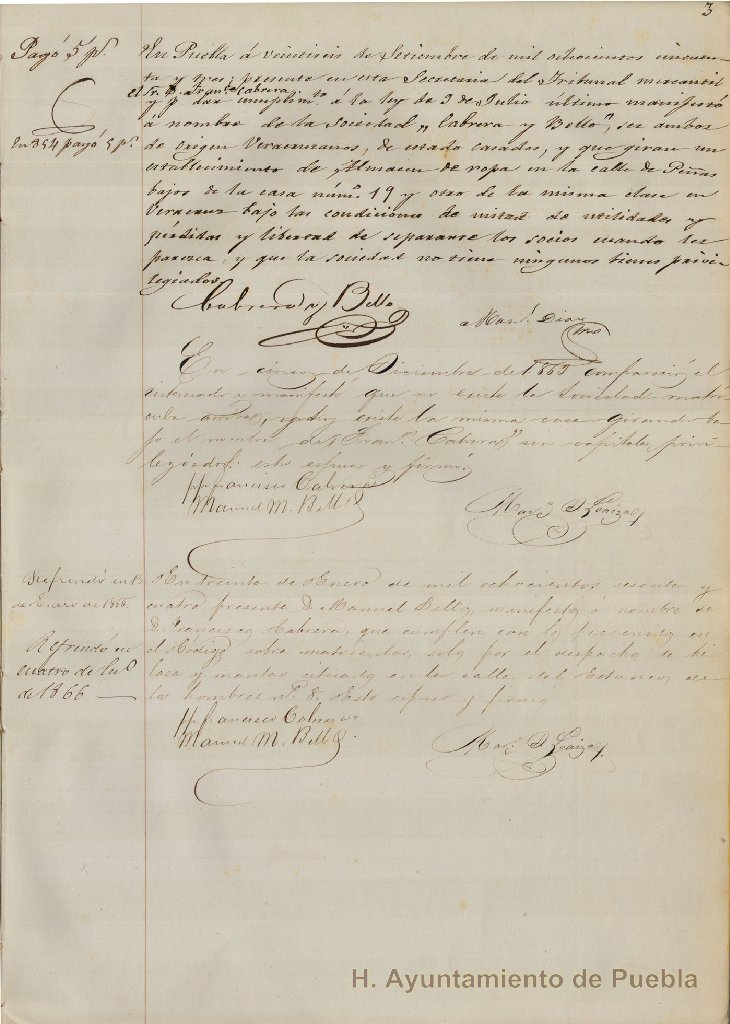 3
Pagó 5 ps.
En 854 pagó 5 ps.
En Puebla á veintiseis de Setiembre de mil ochocientos cincuen-
ta y tres; presente en esta Secretaria del Tribunal mercantil
el Sr. D. Franco. Cabrera
y pa. dar cumplimto. á la ley de 9 de Julio último manifestó
a nombre de la Sociedad „Cabrera y Bello", ser ambos
de origen Veracruzanos, de estado casados, y que giran un
establecimiento de Almacen de ropa en la calle de
bajos de la casa núm. 19 y otro de la misma clase en
Veracruz bajo las condiciones de mitad de utilidades y
pérdidas y libertad de separarse los socios cuando les
paresca, y que la sociedad no tiene ningunos bienes privi-
legiados.
Cabrera y Bello
Diaz
En cinco de Diciembre de 1862 compareció el
interesado y manifestó que no existe la Sociedad matri-
culada existe la misma casa girando ba-
jo el nombre de Fran. Cabrera" sin capitales privi-
legiados: esto espuso y firmó.
Francisco Cabrera
Manuel M. Bello
Refrendó en
de Enero de 1865
Refrendó en
cuatro de
de 1866
En treinta de Enero de mil ochocientos sesenta y
cuatro presente D. Manuel Bello, manifestó á nombre de
D. Francisco Cabrera, que cumplen con lo prevenido en
el Código sobre matriculas, solo por el despacho de hi-
laza y mantas situado en la calle del Estanco de
los hombres N. 8. Esto espuso y firmó
Francisco Cabrera
Manuel M. Bello
H. Ayuntamiento de Puebla